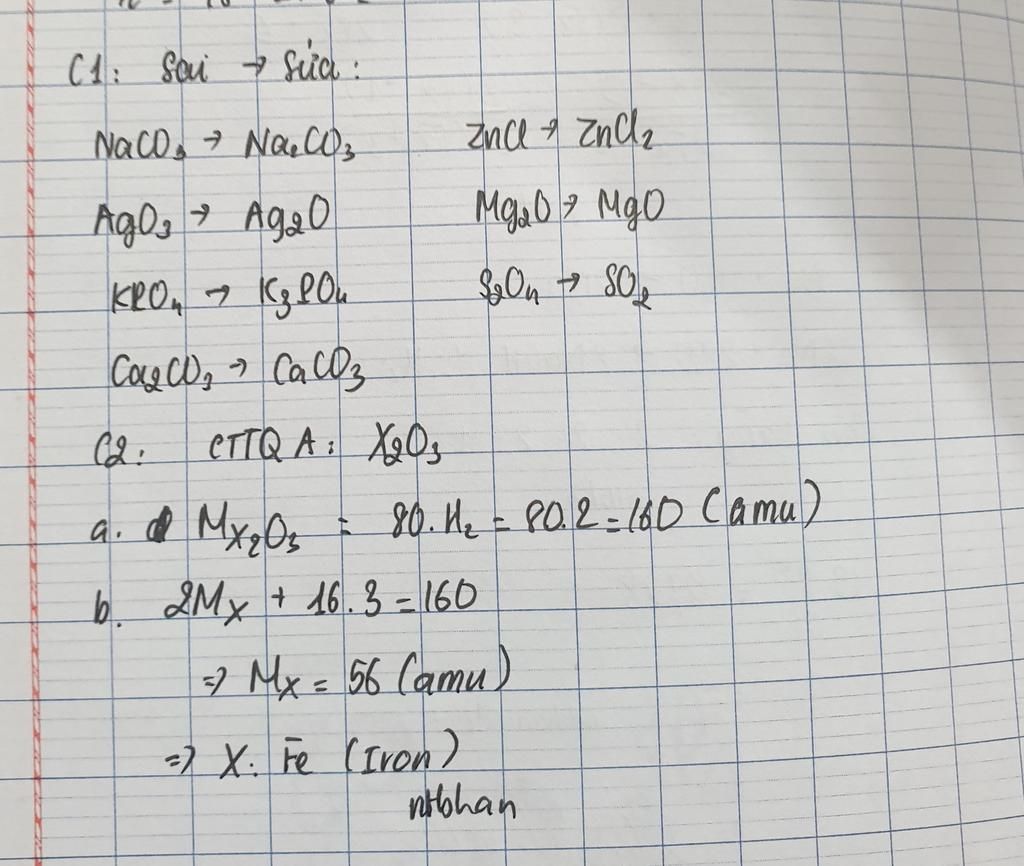 C1: Sai → Sửa:
NaCO₃ → Na₂CO₃ ZnCl → ZnCl₂
AgO₃ → Ag₂O Mg₂O → MgO
KPO₄ → K₃PO₄ S₂O₄ → SO₂
Ca₂CO₃ → CaCO₃
C2: CTTQ A: X₂O₃
a. M X₂O₃ = 80.H₂ = 80.2 = 160 (amu)
b. 2Mx + 16.3 = 160
=> Mx = 56 (amu)
=> X: Fe (Iron)